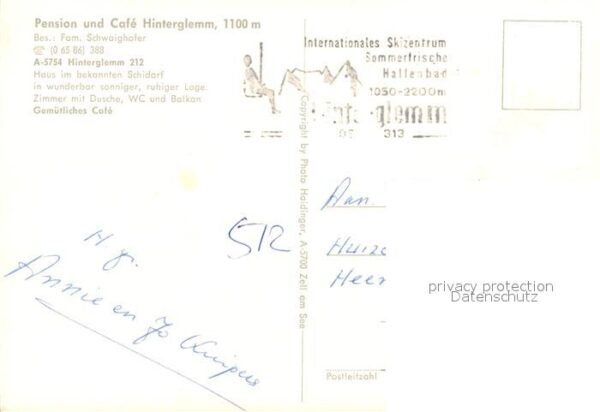 Pension und Café Hinterglemm, 1100 m
Bes.: Fam. Schwaighofer
☎ (0 65 86) 388
A-5754 Hinterglemm 212
Haus im bekannten Schidorf
in wunderbar sonniger, ruhiger Lage.
Zimmer mit Dusche, WC und Balkon
Gemütliches Café
Internationales Skizentrum
Sommerfrische
Hallenbad
1050-2200m
313
Copyright by Photo Haidinger, A-5700 Zell am See
512
H. g.
Annie en Jo Kuipers
Aan
Huize
Heer
privacy protection
Datenschutz
Postleitzahl